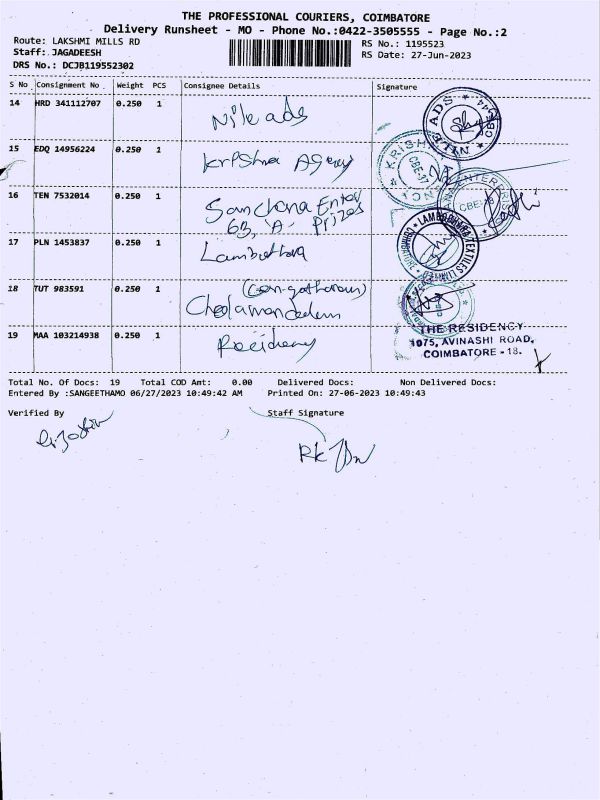 THE PROFESSIONAL COURIERS, COIMBATORE
Delivery Runsheet - MO - Phone No.:0422-3505555 - Page No.:2
Route: LAKSHMI MILLS RD
RS No.: 1195523
Staff: JAGADEESH
RS Date: 27-Jun-2023
DRS No.: DCJB119552302
S No Consignment No Weight PCS Consignee Details Signature
14 HRD 341112707 0.250 1 Nile ads
NILE ADS
15 EDQ 14956224 0.250 1 Krishna Agency
KRISHNA CBE-37
16 TEN 7532014 0.250 1 Sanchana Enter
63, A- Prizes
ENTERPRISES CBE-18
17 PLN 1453837 0.250 1 Lambodhara
LAMBODHARA TEXTILES LIMITED COIMBATORE
18 TUT 983591 1 0.250
Cholamandalam
19 MAA 103214938 0.250 1 Residency
THE RESIDENCY
1075, AVINASHI ROAD,
COIMBATORE - 18.
Total No. Of Docs: 19 Total COD Amt: 0.00 Delivered Docs: Non Delivered Docs:
Entered By :SANGEETHAMO 06/27/2023 10:49:42 AM Printed On: 27-06-2023 10:49:43
Verified By Staff Signature